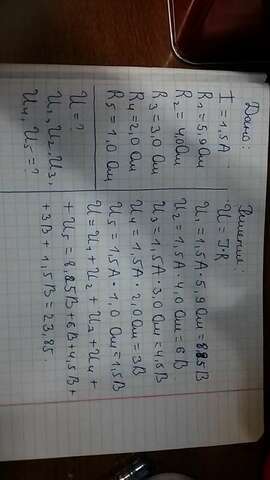 Дано:
I = 1,5 А
R1 = 5,9 Ом
R2 = 4,0 Ом
R3 = 3,0 Ом
R4 = 2,0 Ом
R5 = 1,0 Ом
U = ?
U1, U2, U3,
U4, U5 = ?
Решение:
U = I·R
U1 = 1,5А · 5,9 Ом = 8,85В
U2 = 1,5А · 4,0 Ом = 6В
U3 = 1,5А · 3,0 Ом = 4,5В
U4 = 1,5А · 2,0 Ом = 3В
U5 = 1,5А · 1,0 Ом = 1,5В
U = U1 + U2 + U3 + U4 +
+ U5 = 8,85В + 6В + 4,5В +
+ 3В + 1,5В = 23,85.